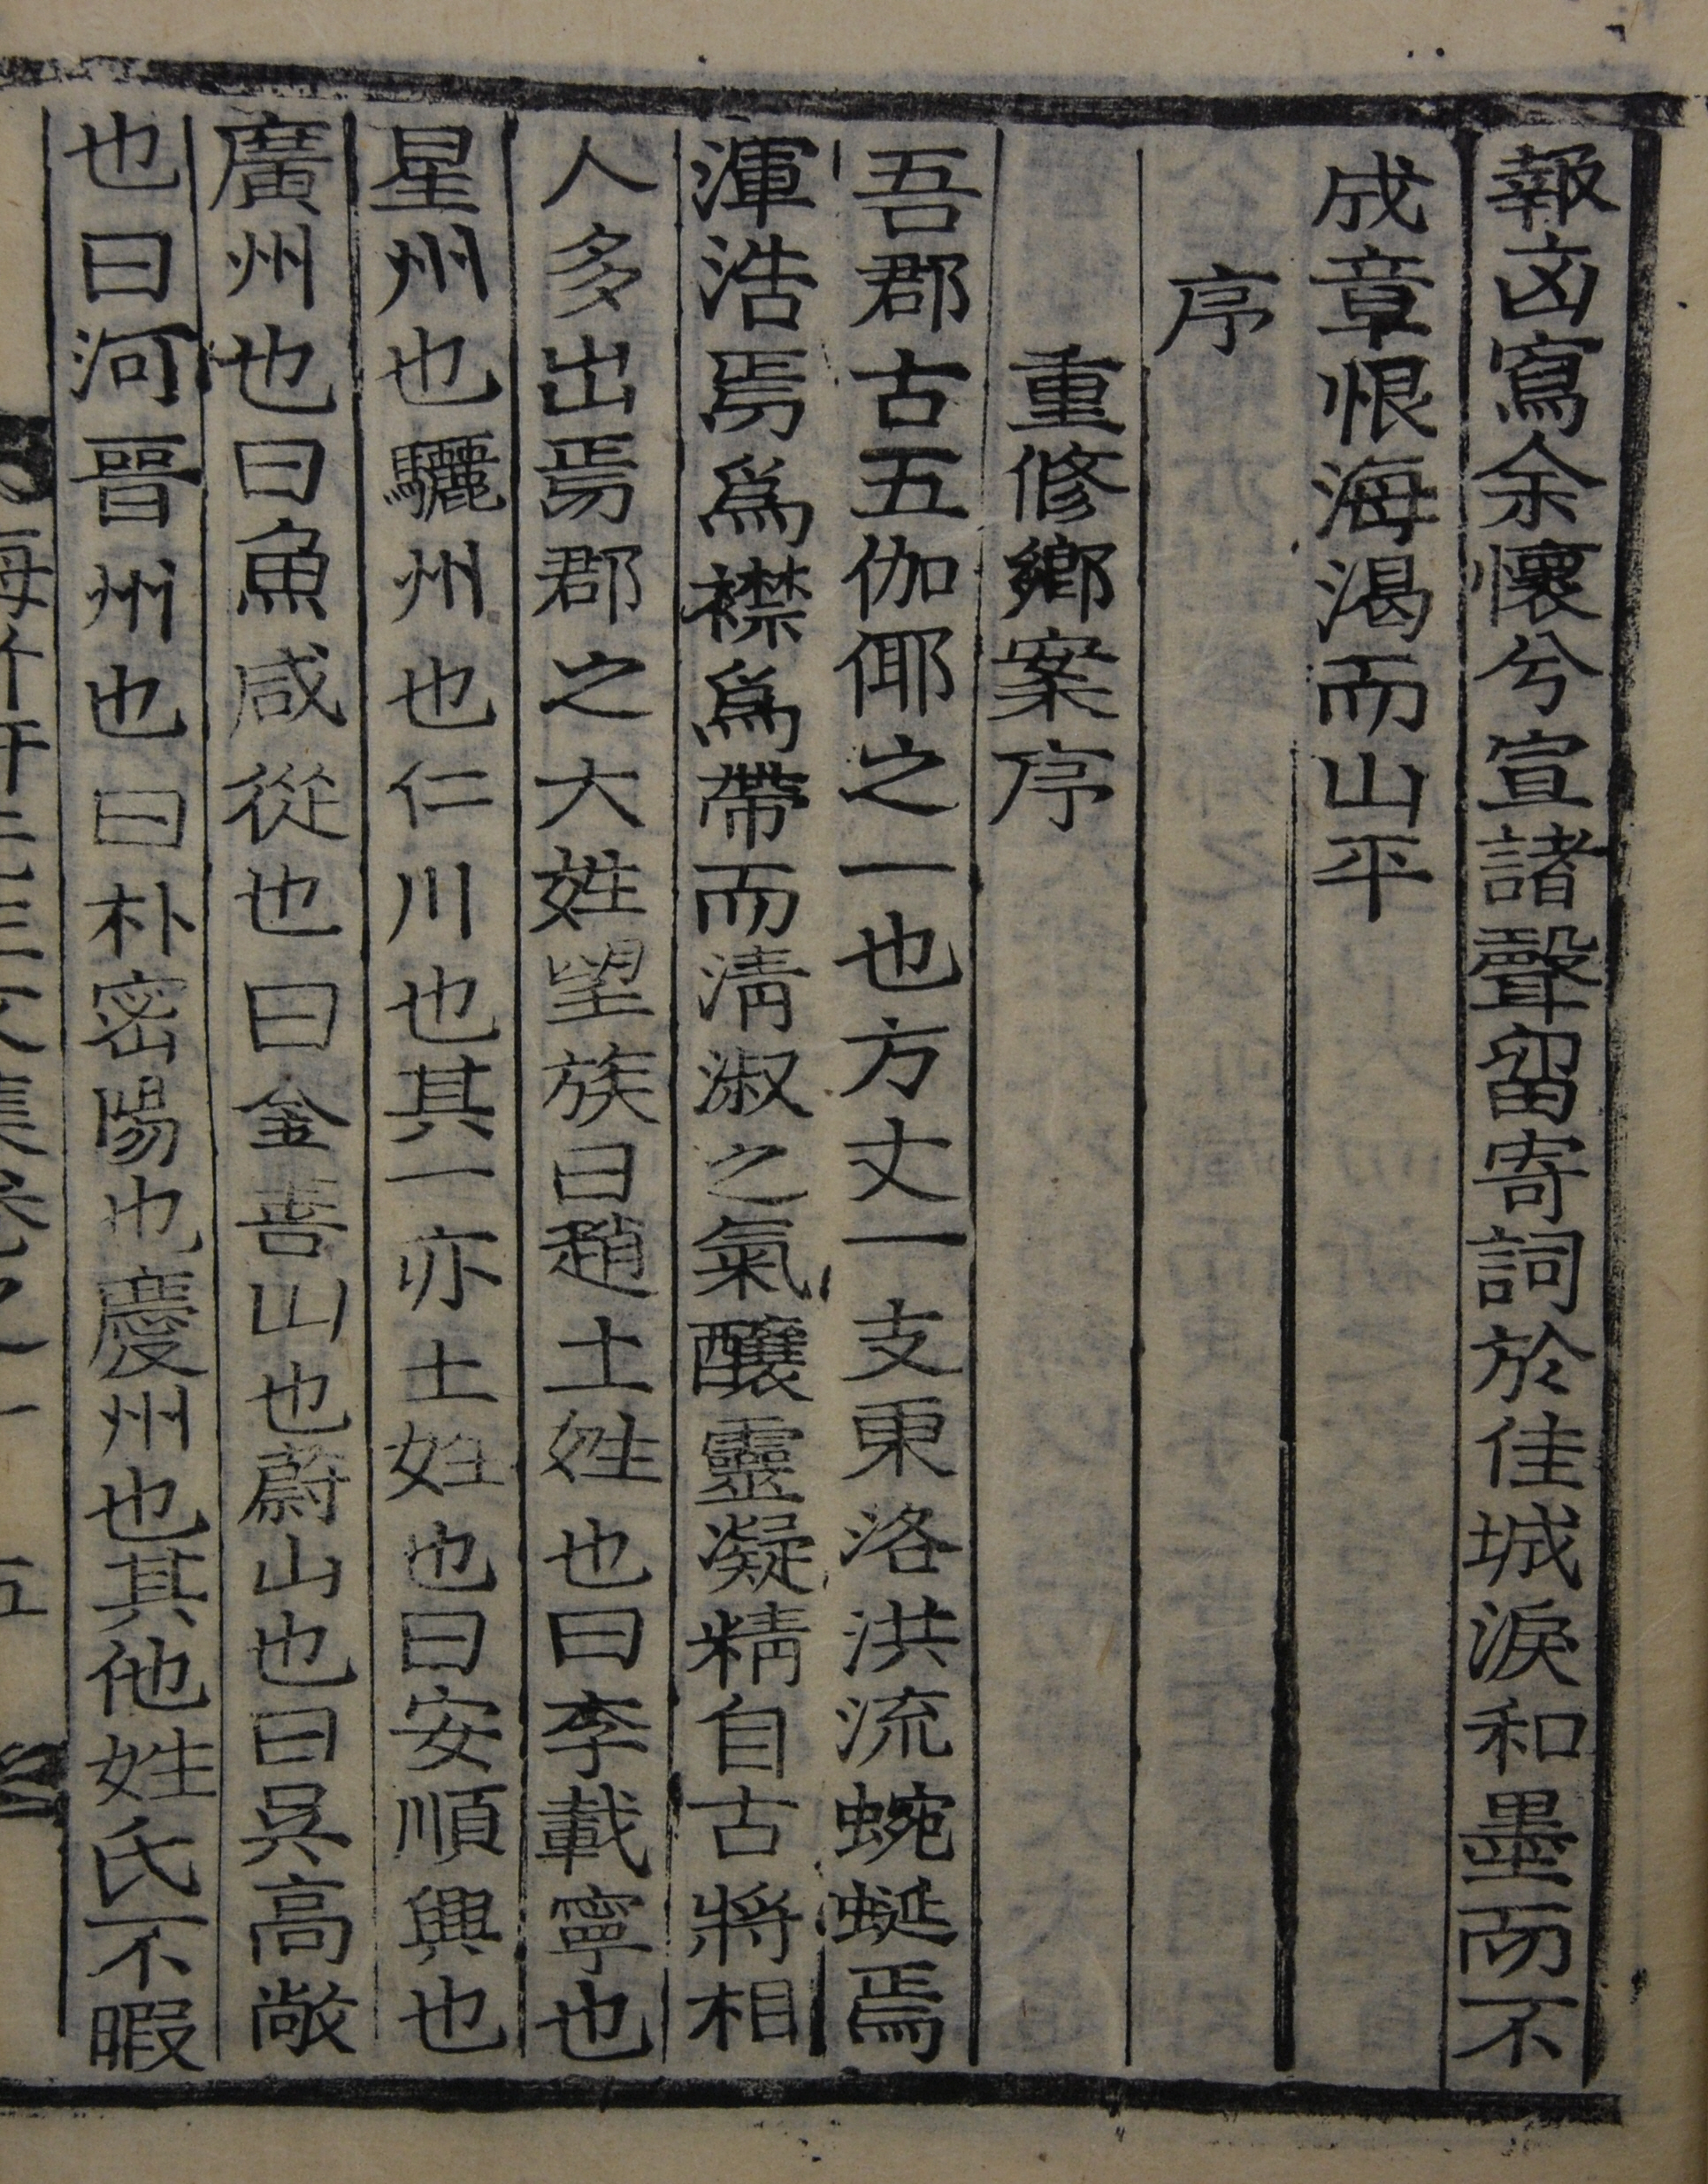 報凶寫余懷兮宣諸聲留寄詞於佳城淚和墨而不
成章恨海渴而山平
序
重修鄉案序
吾郡古五伽倻之一也方丈一支東洛洪流蜿蜒焉
渾浩焉爲襟爲帶而淸淑之氣釀靈凝精自古將相
人多出焉郡之大姓望族曰趙土姓也曰李載寧也
星州也驪州也仁川也其一亦土姓也曰安順興也
廣州也曰魚咸從也曰金善山也蔚山也曰吳高敞
也曰河晉州也曰朴密陽也慶州也其他姓氏不暇